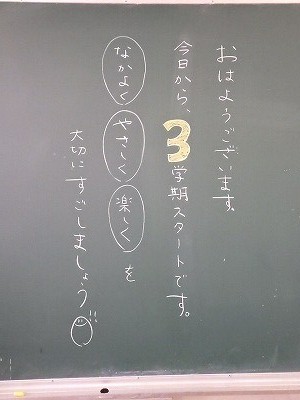 おはようございます。
今日から、3学期スタートです。
なかよく やさしく 楽しく を
大切にすごしましょう